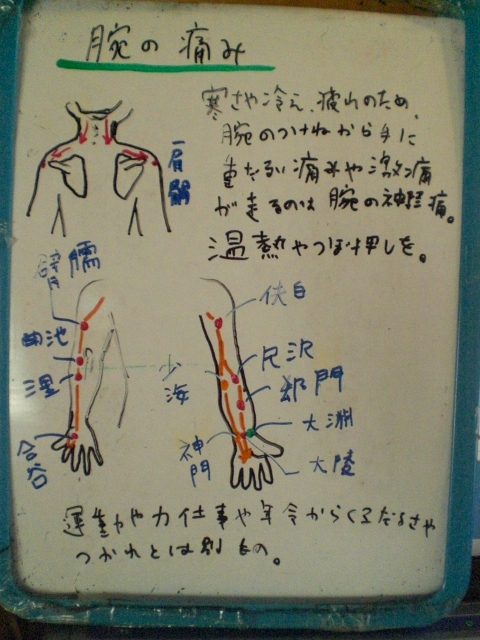 腕の痛み
寒さや冷え、疲れのため、
腕のつけねから手に
重だるい痛みや激痛
が走るのは腕の神経痛。
温熱やつぼ押しを。
肩髃
臂臑
曲池
三里
合谷
少海
神門
侠白
尺沢
郄門
太淵
大陵
運動や力仕事や年令からくるだるさや
つかれとは別もの。